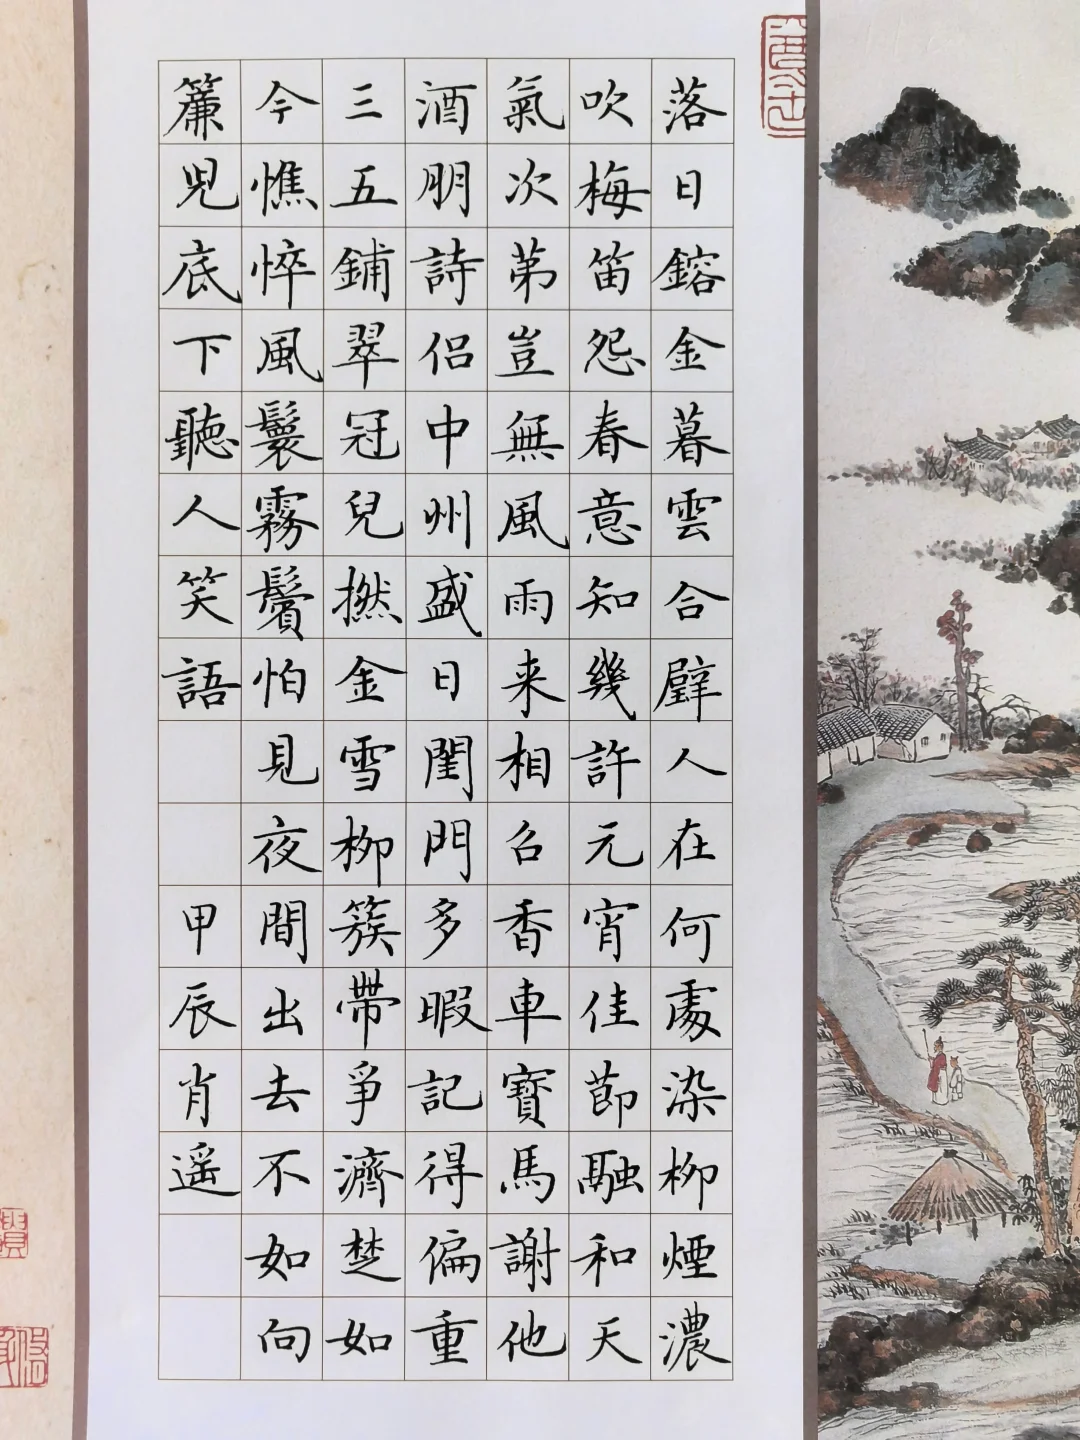 落日鎔金暮雲合璧人在何處染柳煙濃
吹梅笛怨春意知幾許元宵佳節融和天
氣次第豈無風雨来相召香車寶馬謝他
酒朋詩侶中州盛日閨門多暇記得偏重
三五鋪翠冠兒撚金雪柳簇帶爭濟楚如
今憔悴風鬟霧鬢怕見夜間出去不如向
簾兒底下聽人笑語
甲辰肖遥